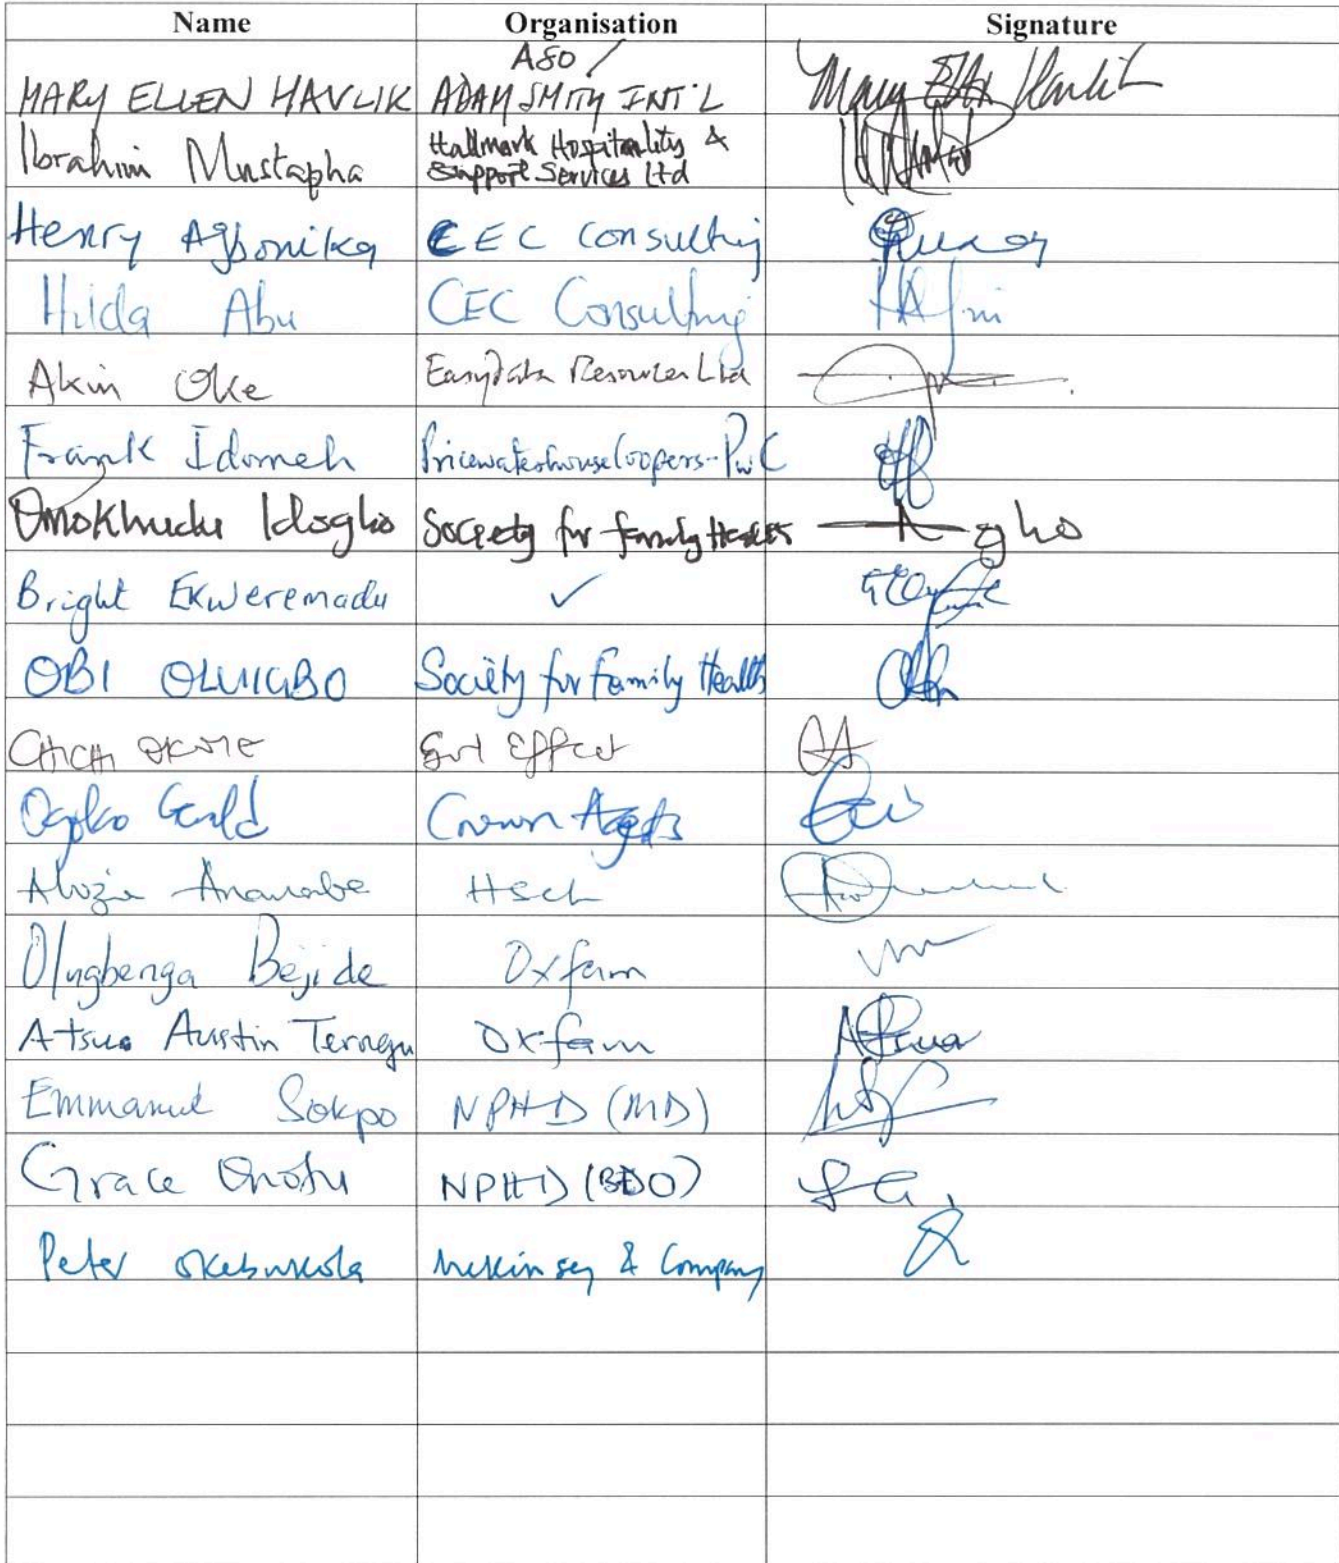 Name Organisation Signature
A80 /
MARY ELLEN HAVLIK ADAM SMITH INT'L Mary Ellen Havlik
Ibrahim Mustapha Hallmark Hospitality &
Support Services Ltd
Henry Agbonika CEC Consulting
Hilda Abu CEC Consulting
Akin Oke EasyData Resources Ltd
Frank Idomeh PricewaterhouseCoopers-PwC
Omokhudu Idogho Society for family Health
Bright Ekweremadu ✓
OBI OLUIGBO Society for Family Health
CHICHI OKOYE Effect
Gerald Crown Agents
Aluzie Ananabe Hsch
Olugbenga Bejide Oxfam
Atsua Austin Ternegu Oxfam Atsua
Emmanuel Sokpo NPHD (MD)
Grace Onotu NPHD (BDO)
Peter Okebukola McKinsey & Company